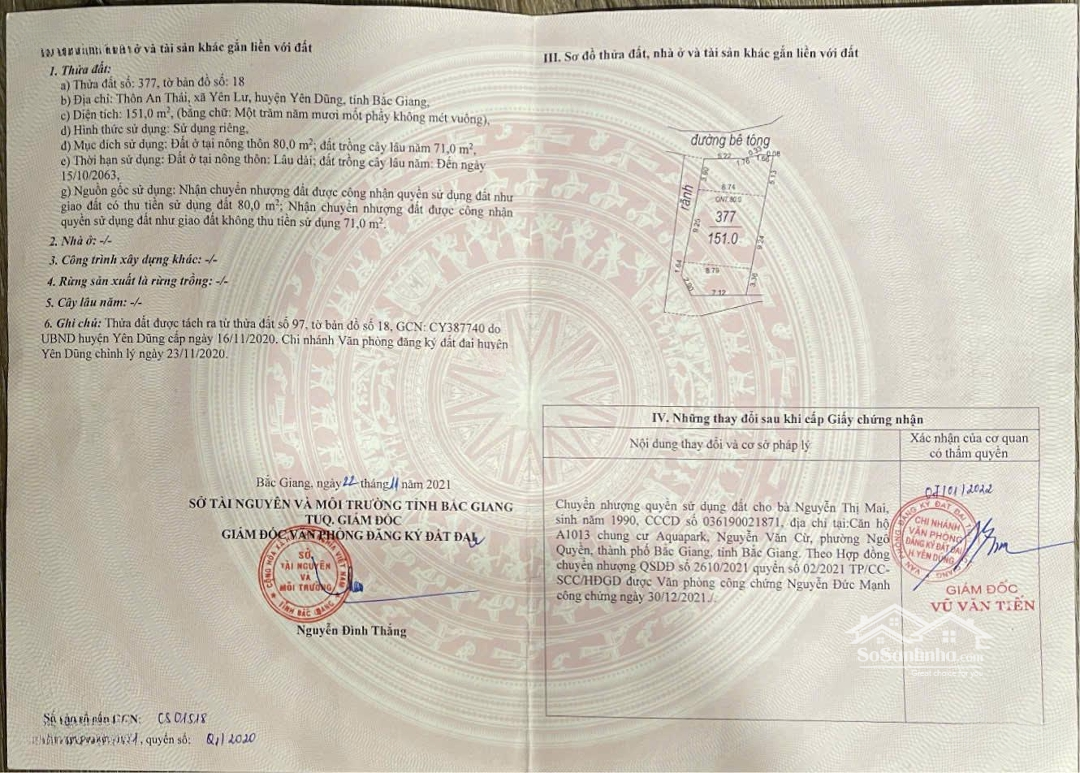 ở và tài sản khác gắn liền với đất
1. Thửa đất:
a) Thửa đất số: 377, tờ bản đồ số: 18
b) Địa chỉ: Thôn An Thái, xã Yên Lư, huyện Yên Dũng, tỉnh Bắc Giang,
c) Diện tích: 151,0 m², (bằng chữ: Một trăm năm mươi mốt phẩy không mét vuông),
d) Hình thức sử dụng: Sử dụng riêng,
đ) Mục đích sử dụng: Đất ở tại nông thôn 80,0 m²; đất trồng cây lâu năm 71,0 m²,
e) Thời hạn sử dụng: Đất ở tại nông thôn: Lâu dài; đất trồng cây lâu năm: Đến ngày
15/10/2063,
g) Nguồn gốc sử dụng: Nhận chuyển nhượng đất được công nhận quyền sử dụng đất như
giao đất có thu tiền sử dụng đất 80,0 m²; Nhận chuyển nhượng đất được công nhận
quyền sử dụng đất như giao đất không thu tiền sử dụng 71,0 m².
2. Nhà ở: -/-
3. Công trình xây dựng khác: -/-
4. Rừng sản xuất là rừng trồng: -/-
5. Cây lâu năm: -/-
6. Ghi chú: Thửa đất được tách ra từ thửa đất số 97, tờ bản đồ số 18, GCN: CY387740 do
UBND huyện Yên Dũng cấp ngày 16/11/2020. Chi nhánh Văn phòng đăng ký đất đai huyện
Yên Dũng chỉnh lý ngày 23/11/2020.
Bắc Giang, ngày 22 tháng 11 năm 2021
SỞ TÀI NGUYÊN VÀ MÔI TRƯỜNG TỈNH BẮC GIANG
TUQ. GIÁM ĐỐC
GIÁM ĐỐC VĂN PHÒNG ĐĂNG KÝ ĐẤT ĐAI
SỞ
TÀI NGUYÊN
VÀ
MÔI TRƯỜNG
TỈNH BẮC GIANG
Nguyễn Đình Thắng
GCN: CS01518
quyển số: 01/2020
III. Sơ đồ thửa đất, nhà ở và tài sản khác gắn liền với đất
đường bê tông
5.22 1.76
3.90 5.13
rãnh
8.74
377
9.25 9.24
151.0
1.64 8.79
3.36
7.12
IV. Những thay đổi sau khi cấp Giấy chứng nhận
Nội dung thay đổi và cơ sở pháp lý
Xác nhận của cơ quan
có thẩm quyền
Chuyển nhượng quyền sử dụng đất cho bà Nguyễn Thị Mai,
sinh năm 1990, CCCD số 036190021871, địa chỉ tại:Căn hộ
A1013 chung cư Aquapark, Nguyễn Văn Cừ, phường Ngô
Quyền, thành phố Bắc Giang, tỉnh Bắc Giang. Theo Hợp đồng
chuyển nhượng QSDĐ số 2610/2021 quyển số 02/2021 TP/CC-
SCC/HĐGD được Văn phòng công chứng Nguyễn Đức Mạnh
công chứng ngày 30/12/2021./
07/01/2022
CHI NHÁNH
VĂN PHÒNG
ĐĂNG KÝ ĐẤT ĐAI
H. YÊN DŨNG
GIÁM ĐỐC
VŨ VĂN TIẾN
SoSanNha.com